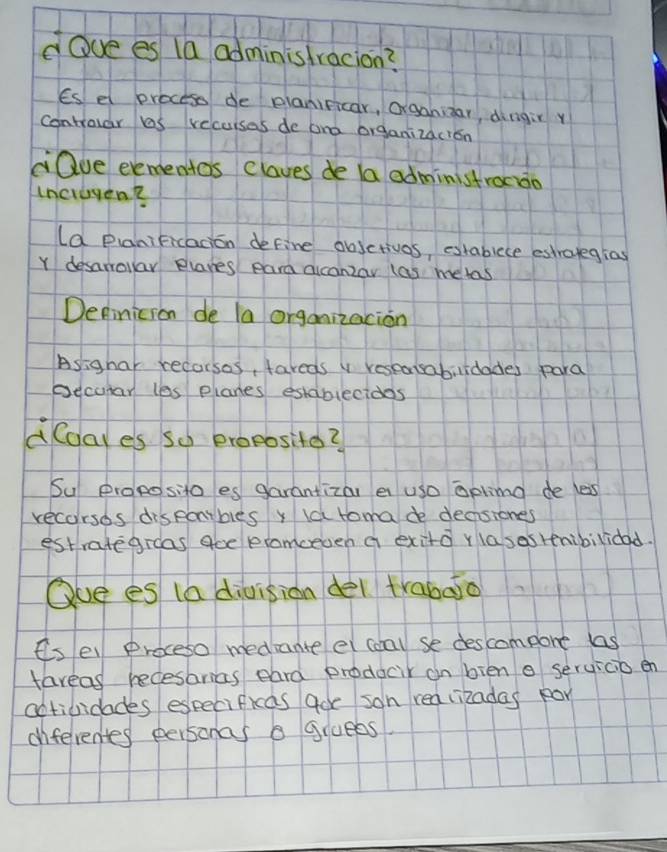 ¿Que es la administracion?
Es el proceso de planificar, Organizar, dirigir y
controlar los recursos de una organización
¿Que elementos claves de la administración
incluyen?
La planificación define objetivos, establece estrategias
y desarrollar planes para alcanzar las metas
Definicion de la organización
Asignar recursos, tareas y responsabilidades para
ejecutar los planes establecidos
¿Cual es su proposito?
Su proposito es garantizar el uso óptimo de los
recursos disponibles y la toma de decisiones
estratégicas que promueven a exitó y la sostenibilidad.
Que es la division del trabajo
Es el proceso mediante el cual se descompone las
tareas necesarias para producir un bien o servicio en
actividades especificas que son realizadas por
diferentes personas o grupos.